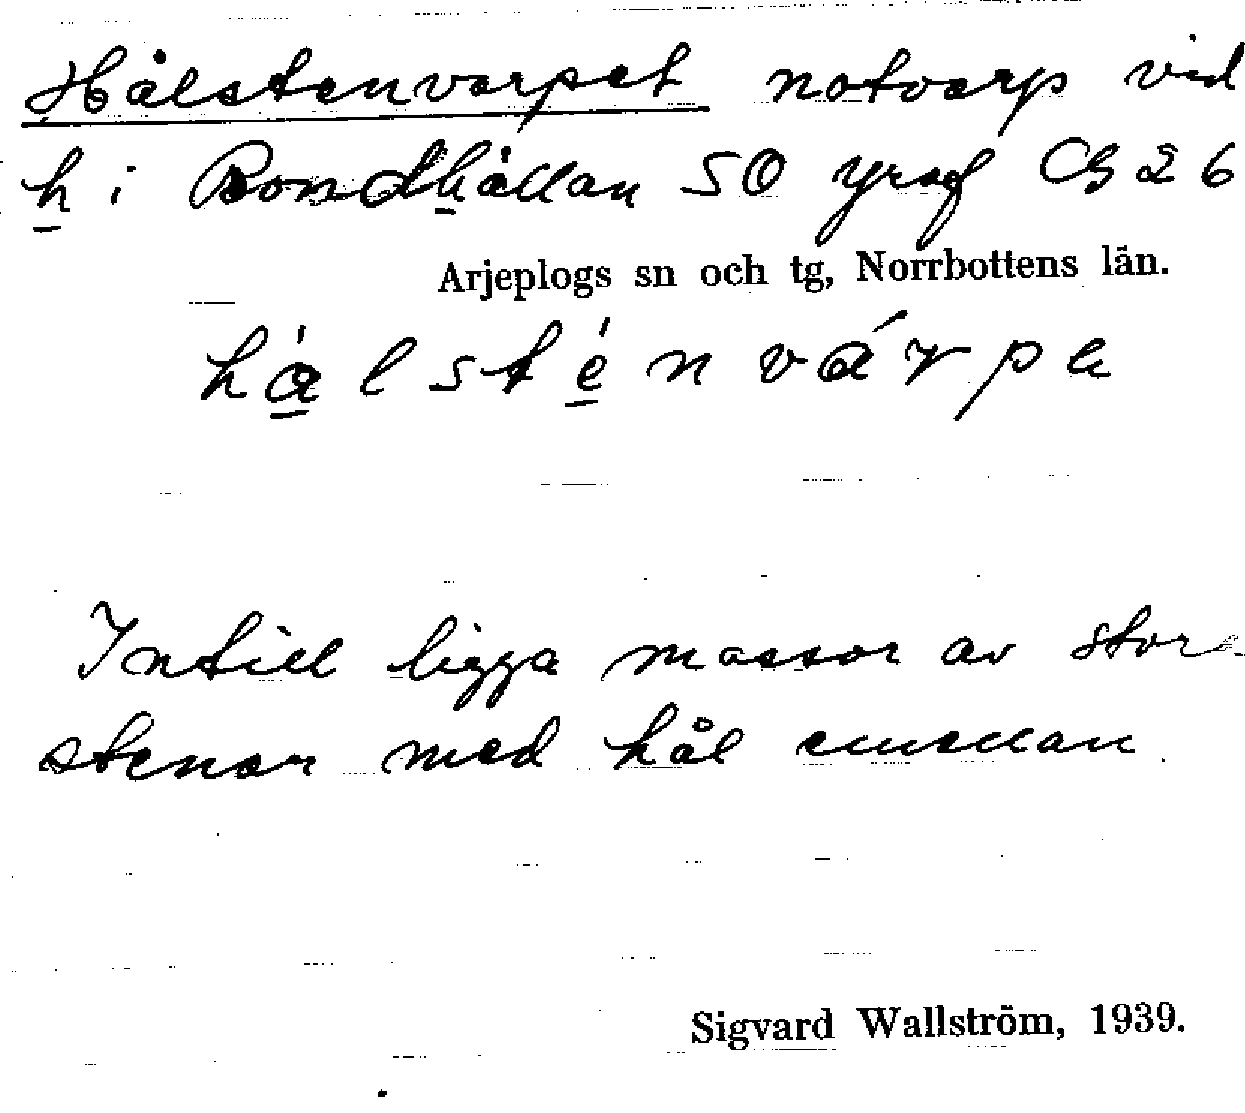 Hålstenvarpet notvarp vid
h i Bondhållan SO yraf Cg 26
Arjeplogs sn och tg, Norrbottens län.
há̱lsté̱nvárpe
Intill ligga massor av stora
stenar med hål emellan.
Sigvard Wallström, 1939.